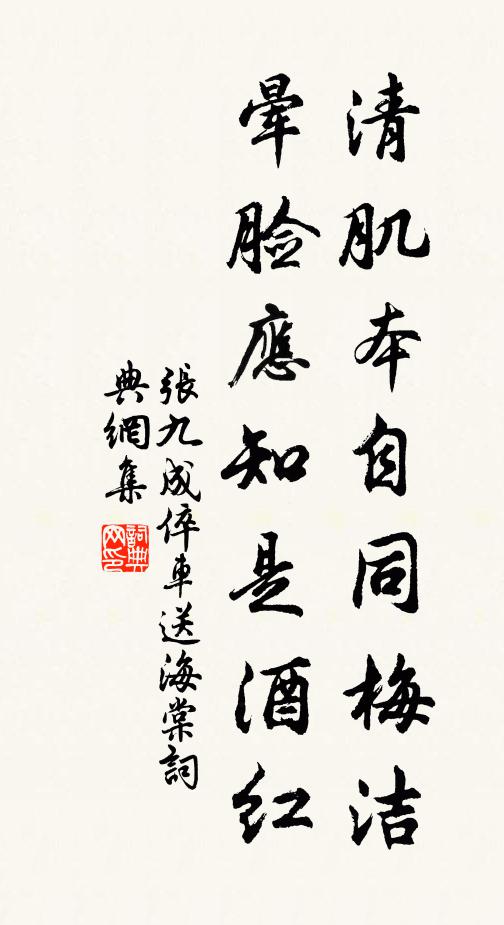 清肌本自同梅洁
晕脸應知是酒红
張九成倅車送海棠詞
典網集
詞典
网印